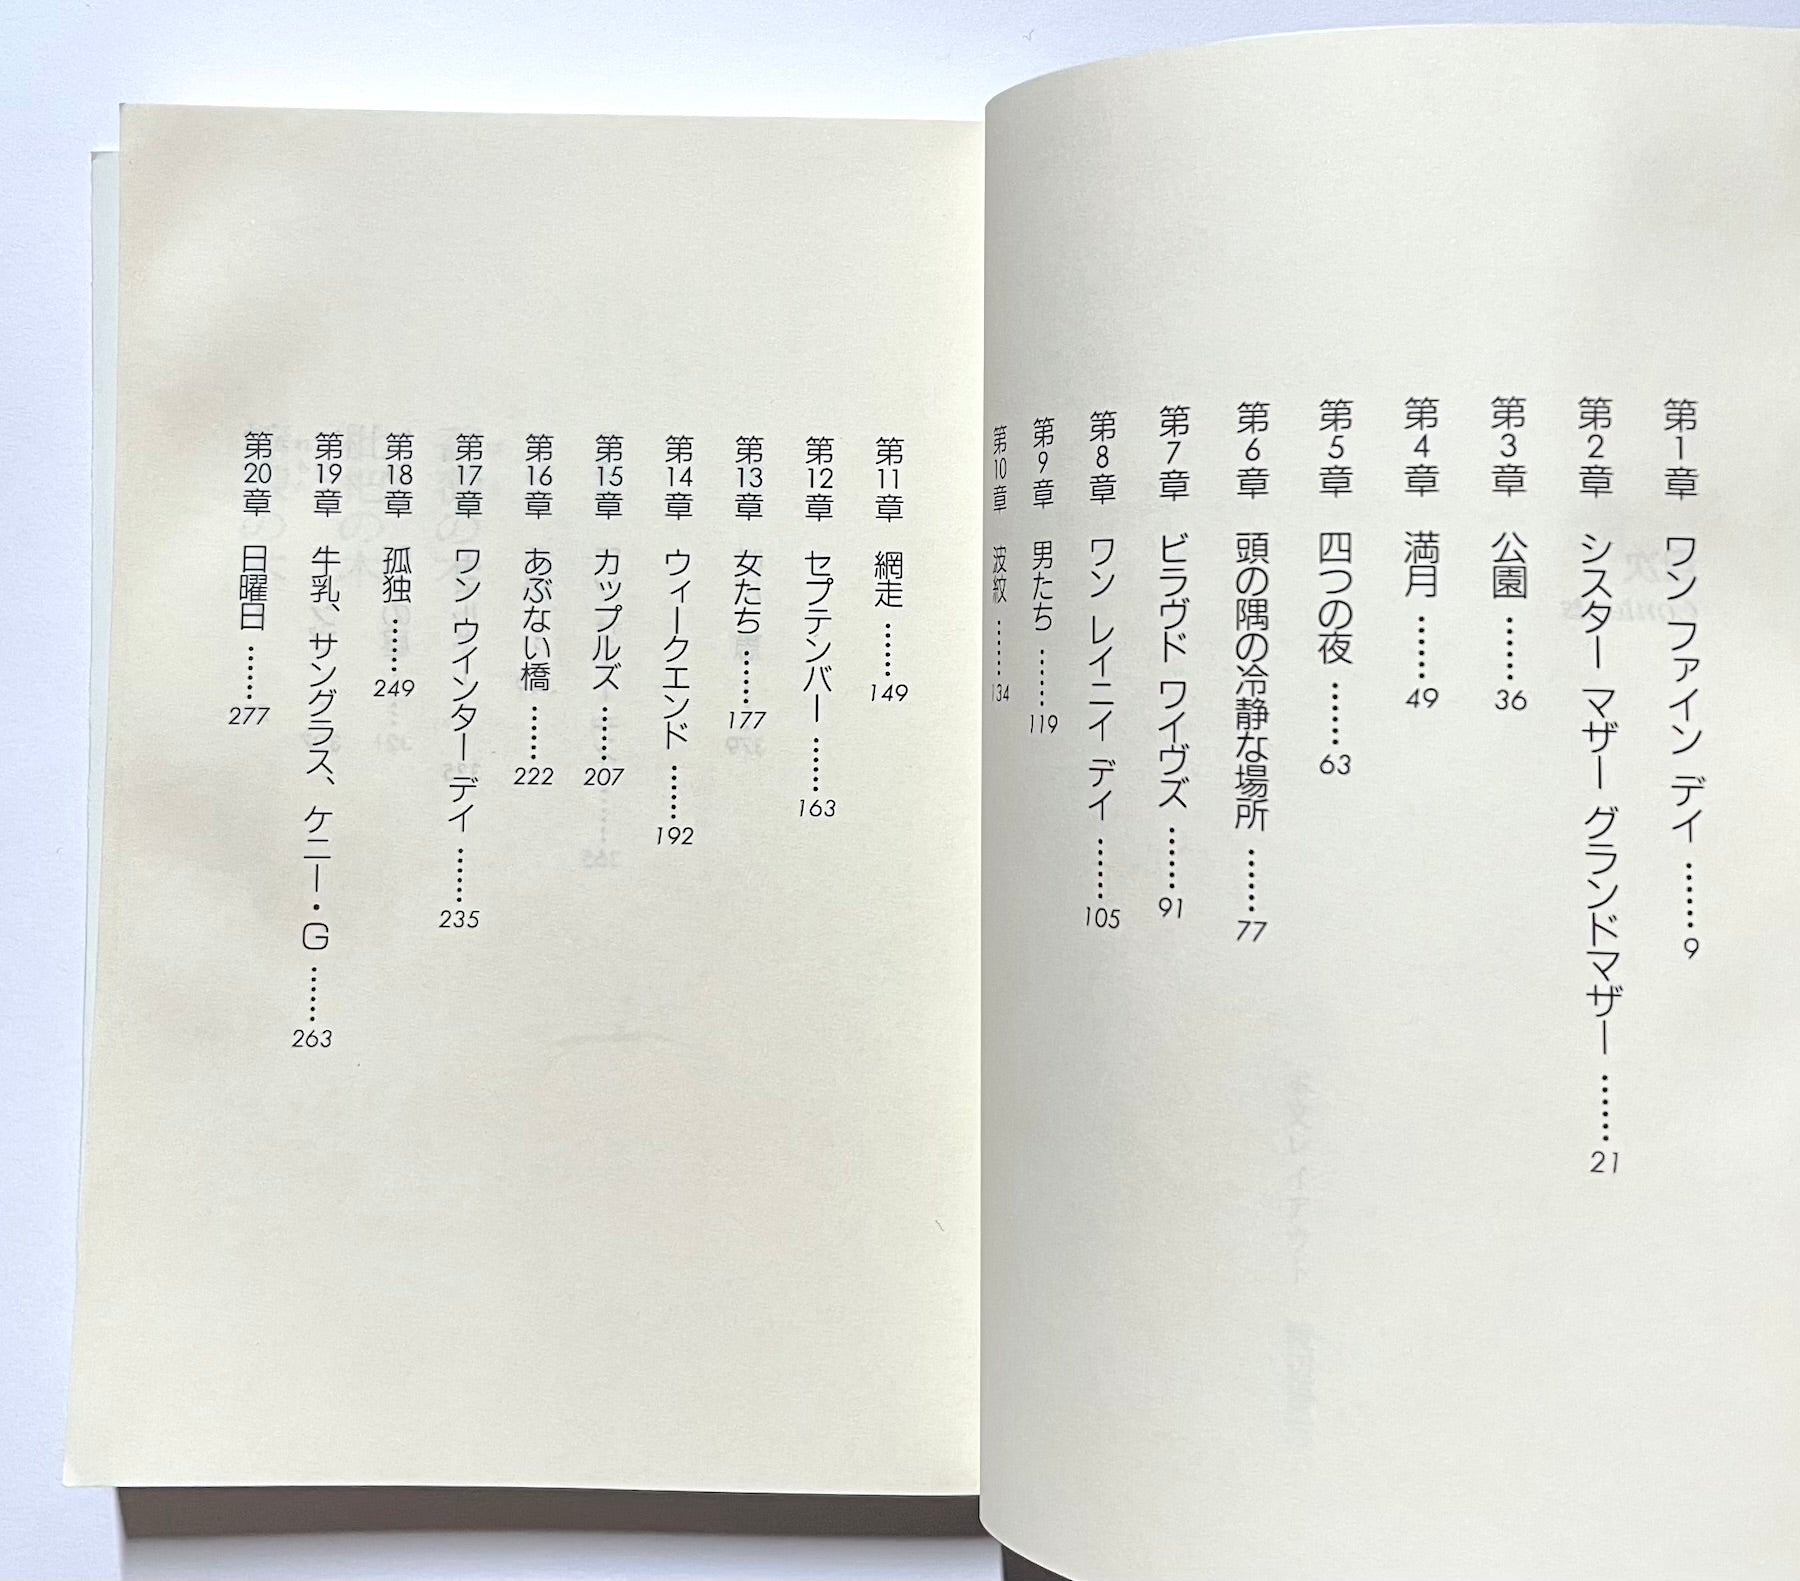 第1章 ワン ファイン デイ ……9
第2章 シスター マザー グランドマザー ……21
第3章 公園 ……36
第4章 満月 ……49
第5章 四つの夜 ……63
第6章 頭の隅の冷静な場所 ……77
第7章 ビラヴド ワイヴズ ……91
第8章 ワン レイニイ デイ ……105
第9章 男たち ……119
第10章 波紋 ……134
第11章 網走 ……149
第12章 セプテンバー ……163
第13章 女たち ……177
第14章 ウィークエンド ……192
第15章 カップルズ ……207
第16章 あぶない橋 ……222
第17章 ワン ウィンター デイ ……235
第18章 孤独 ……249
第19章 牛乳、サングラス、ケニー・G ……263
第20章 日曜日 ……277